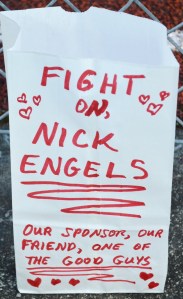 FIGHT
ON,
NICK
ENGELS
OUR SPONSOR, OUR
FRIEND, ONE OF
THE GOOD GUYS